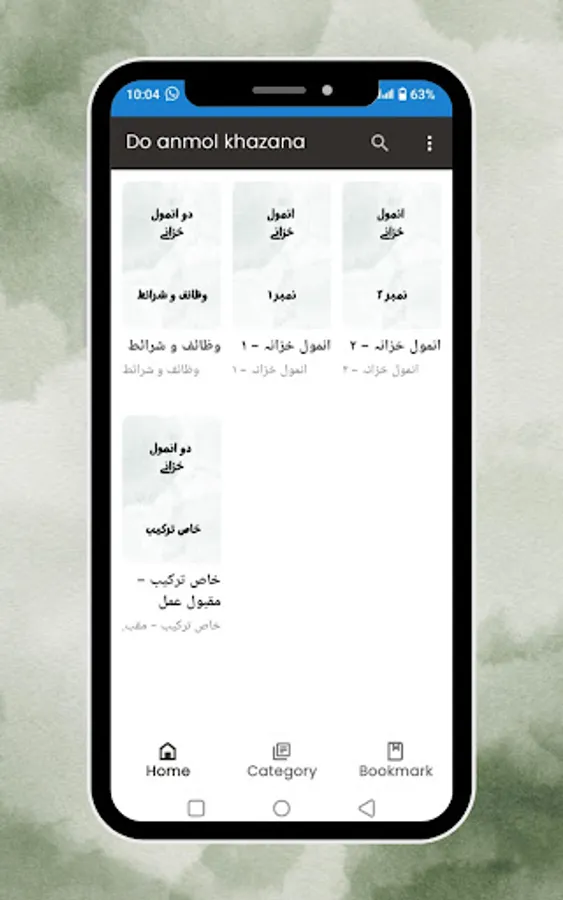 10:04
63%
Do anmol khazana
دو انمول
خزانے
وظائف و شرائط
انمول
خزانے
نمبر ۱
انمول
خزانے
نمبر ۲
وظائف و شرائط
وظائف و شرائط
انمول خزانہ – ۱
انمول خزانہ – ۱
انمول خزانہ – ۲
انمول خزانہ – ۲
دو انمول
خزانے
خاص ترکیب
خاص ترکیب –
مقبول عمل
خاص ترکیب – مقب.
Home
Category
Bookmark